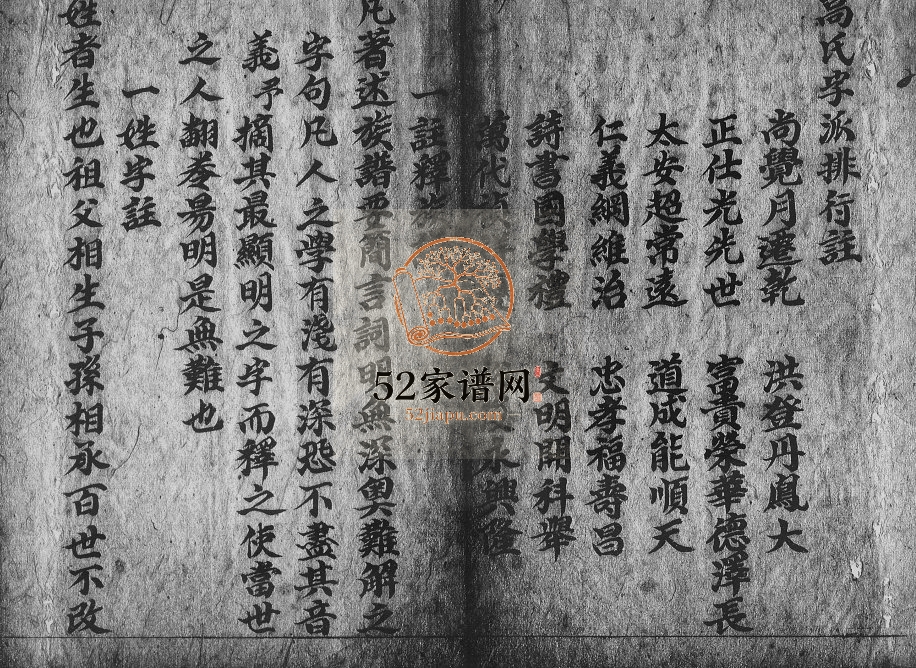 高氏字派排行註
尚覺月遷乾 洪登丹鳳大
正仕光先世 富貴榮華德澤長
太安超常遠 道成能順天
仁義綱維治 忠孝福壽昌
詩書國學禮 文明開科舉
萬代 永興隆
一註釋族
凡著述族譜要簡言詞明無深奧難解之
字句凡人之學有淺有深恐不盡其音
義予摘其最顯明之字而釋之使當世
之人翻卷易明是無難也
一姓字註
姓者生也祖父相生子孫相承百世不改
52家谱网
52jiapu.com